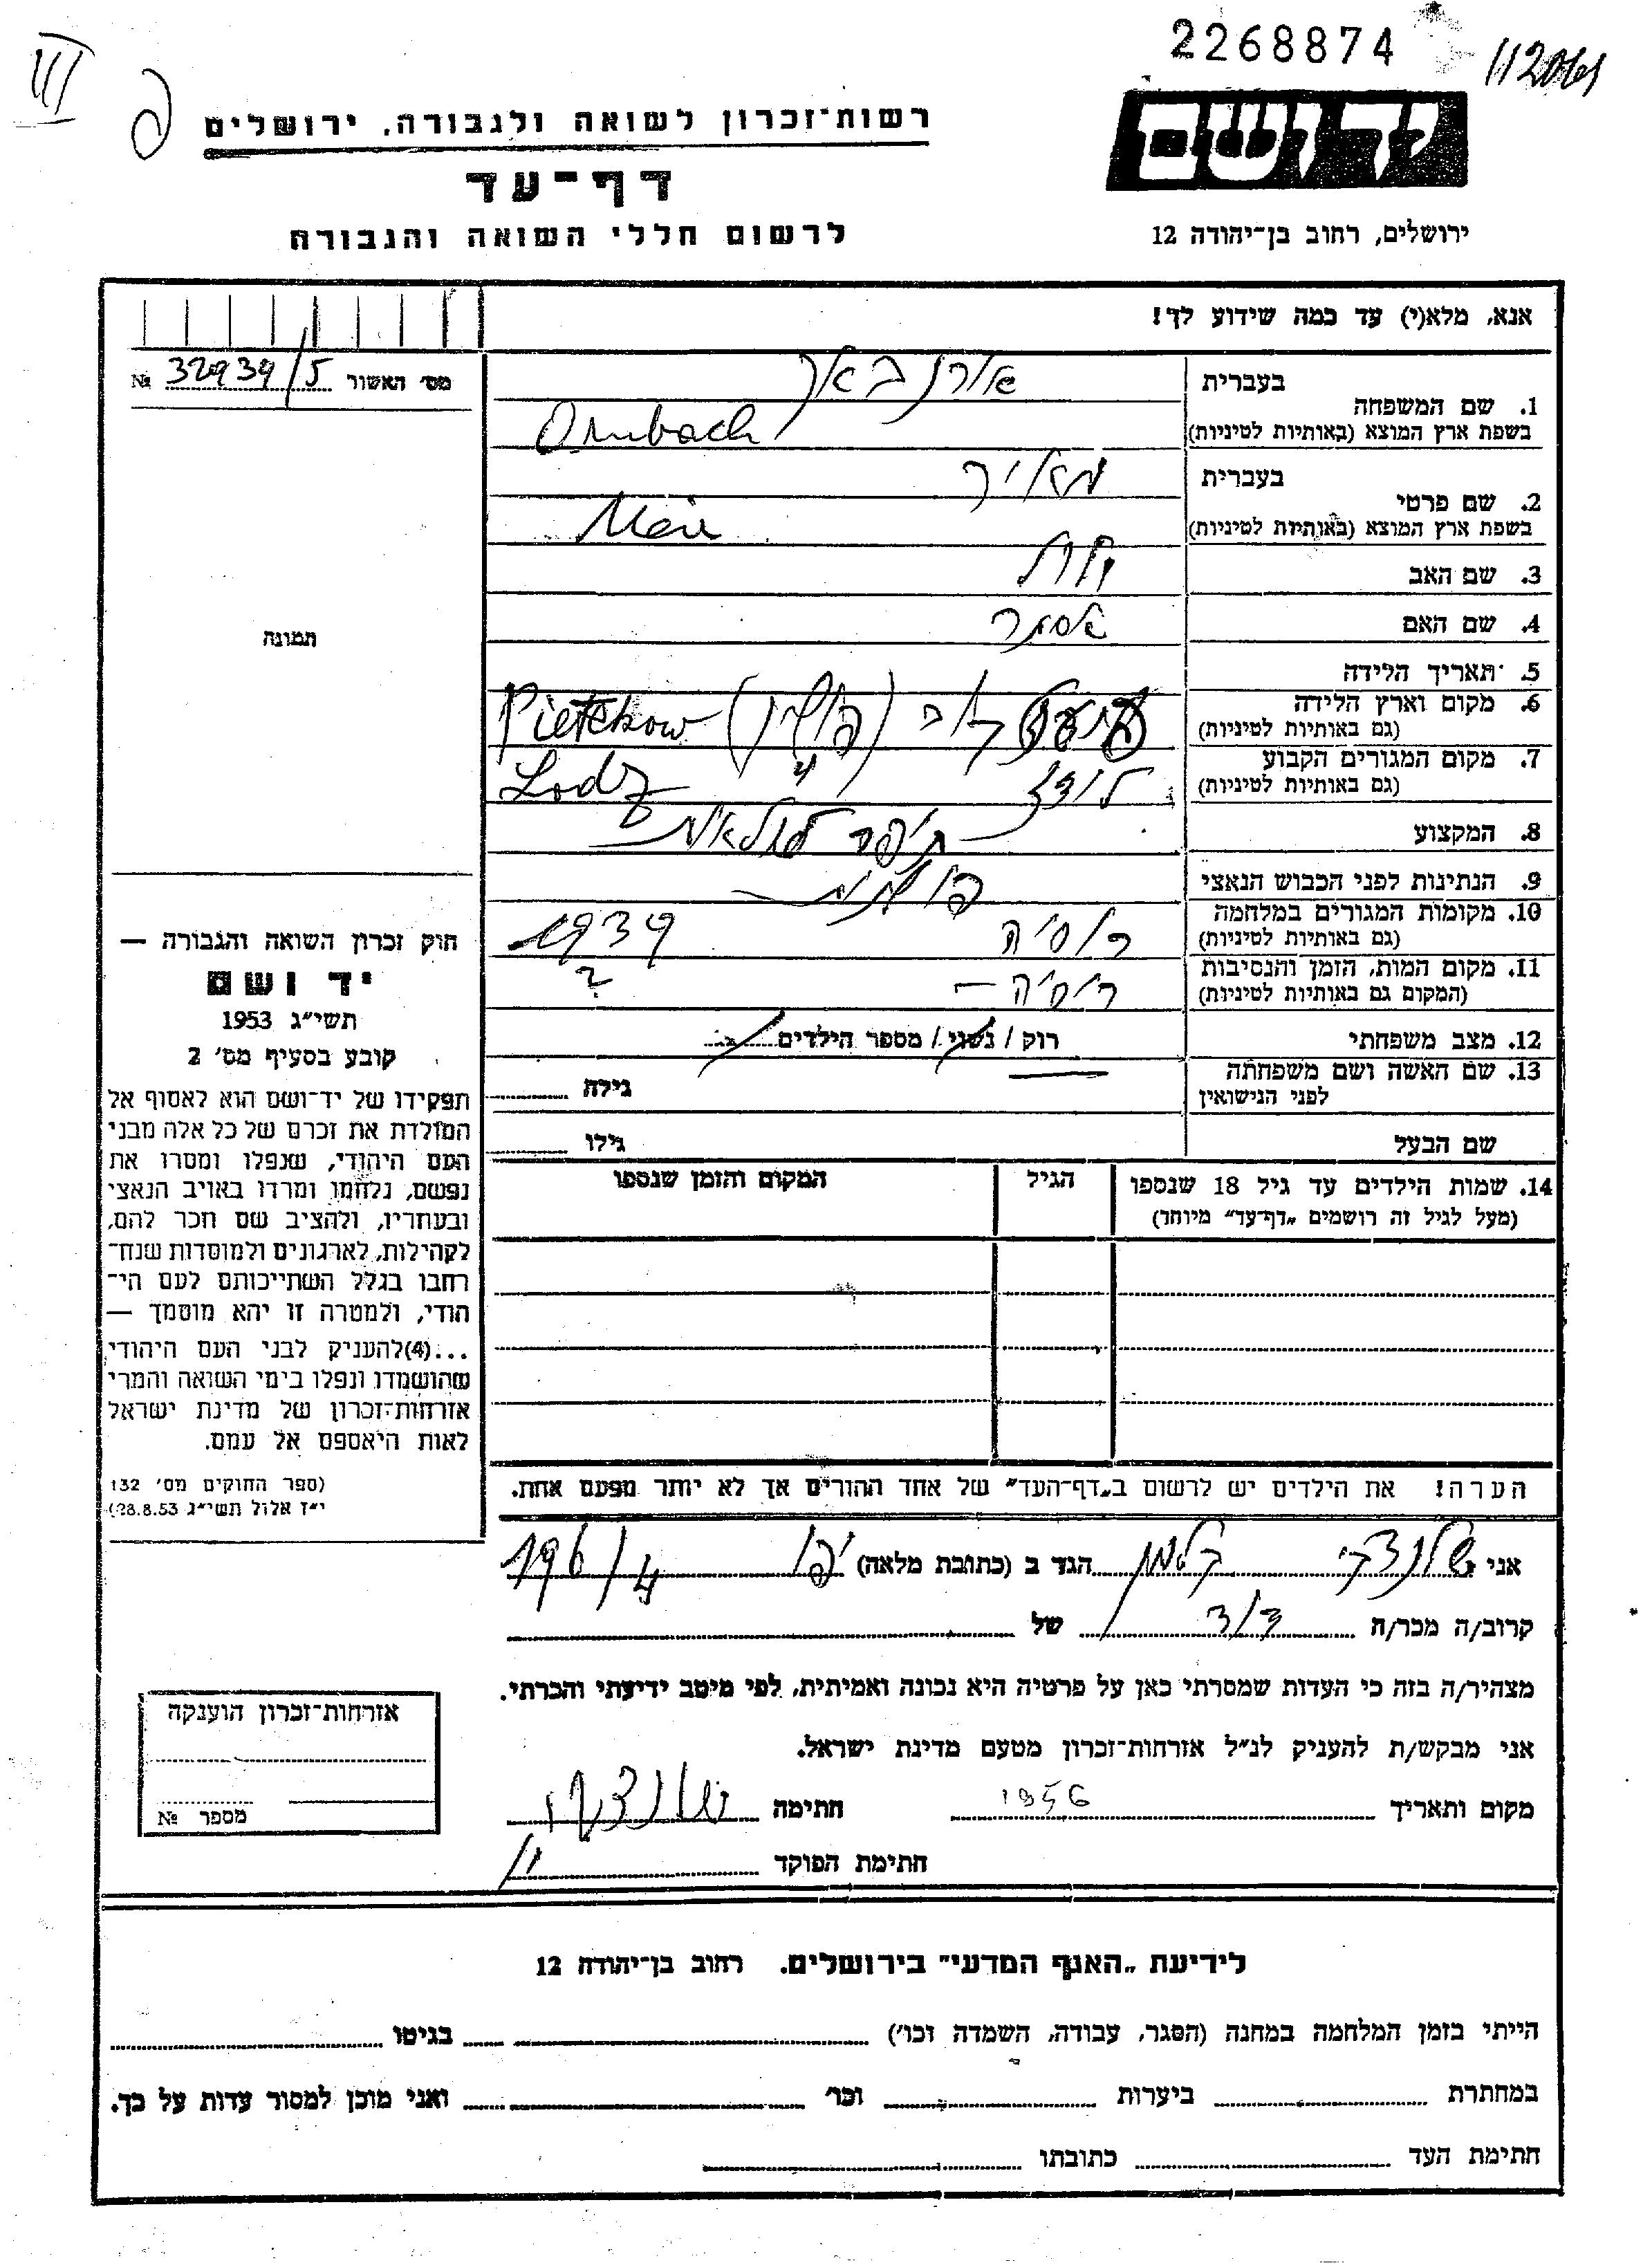 2268874
III
112041
יד ושם
רשות־זכרון לשואה ולגבורה, ירושלים
דף־עד
לרשום חללי השואה והגבורה
ירושלים, רחוב בן־יהודה 12
אנא, מלא(י) עד כמה שידוע לך!
מס׳ האשור 32939/5 №
בעברית אורנבאך
1. שם המשפחה
בשפת ארץ המוצא (באותיות לטיניות) Ornbach
בעברית מאיר
2. שם פרטי
בשפת ארץ המוצא (באותיות לטיניות) Meir
3. שם האב
4. שם האם אסתר
תמונה
5. תאריך הלידה
6. מקום וארץ הלידה
(גם באותיות לטיניות) (פולין) Pietrkow
7. מקום המגורים הקבוע
(גם באותיות לטיניות) לודז Lodz
8. המקצוע תופר
9. הנתינות לפני הכבוש הנאצי פולנית
10. מקומות המגורים במלחמה
(גם באותיות לטיניות) רוסיה 1939
11. מקום המות, הזמן והנסיבות
(המקום גם באותיות לטיניות) רוסיה – ?
12. מצב משפחתי רוק / נשוי / מספר הילדים
13. שם האשה ושם משפחתה
לפני הנישואין גילה
שם הבעל גילו
14. שמות הילדים עד גיל 18 שנספו הגיל המקום והזמן שנספו
(מעל לגיל זה רושמים „דף־עד״ מיוחד)
חוק זכרון השואה והגבורה —
יד ושם
תשי״ג 1953
קובע בסעיף מס׳ 2
תפקידו של יד־ושם הוא לאסוף אל
המולדת את זכרם של כל אלה מבני
העם היהודי, שנפלו ומסרו את
נפשם, נלחמו ומרדו באויב הנאצי
ובעוזריו, ולהציב שם וזכר להם,
לקהילות, לארגונים ולמוסדות שנח־
רבו בגלל השתייכותם לעם הי־
הודי, ולמטרה זו יהא מוסמך —
...(4)להעניק לבני העם היהודי
שהושמדו ונפלו בימי השואה והמרי
אזרחות־זכרון של מדינת ישראל
לאות היאספם אל עמם.
(ספר החוקים מס׳ 132
י״ז אלול תשי״ג 28.8.53)
הערה! את הילדים יש לרשום ב„דף־העד״ של אחד ההורים אך לא יותר מפעם אחת.
אני קלמן הגד ב (כתובת מלאה) יפו 196/4
קרוב/ה מכר/ה דוד של
מצהיר/ה בזה כי העדות שמסרתי כאן על פרטיה היא נכונה ואמיתית, לפי מיטב ידיעתי והכרתי.
אני מבקש/ת להעניק לנ״ל אזרחות־זכרון מטעם מדינת ישראל.
מקום ותאריך 1956 חתימה
חתימת הפוקד
אזרחות־זכרון הוענקה
מספר №
לידיעת „האגף המדעי״ בירושלים. רחוב בן־יהודה 12
הייתי בזמן המלחמה במחנה (הסגר, עבודה, השמדה וכו׳) בגיטו
במחתרת ביערות וכו׳ ואני מוכן למסור עדות על כך.
חתימת העד כתובתו